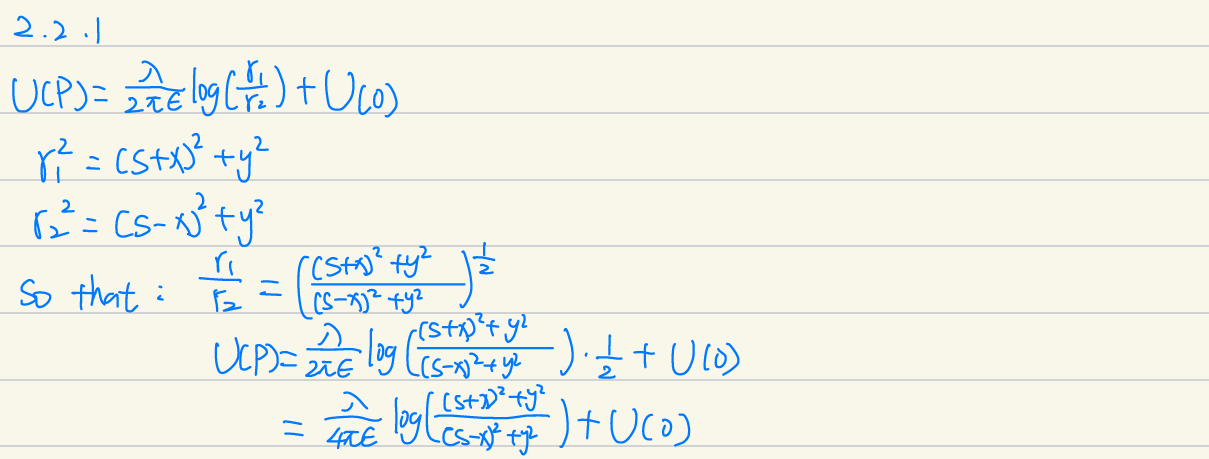 2.2.1
U(P) = λ/(2πϵ) log(r₁/r₂) + U(0)
r₁² = (s+x)² + y²
r₂² = (s-x)² + y²
So that : r₁/r₂ = (((s+x)² + y²)/((s-x)² + y²))^(1/2)
U(P) = λ/(2πϵ) log(((s+x)² + y²)/((s-x)² + y²)) · 1/2 + U(0)
= λ/(4πϵ) log(((s+x)² + y²)/((s-x)² + y²)) + U(0)